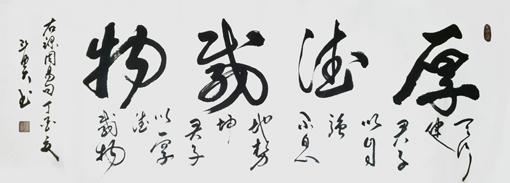 厚德载物
天行
健
君子
以自
强
不息
地势
坤
君子
以厚
德
载物
右录周易句